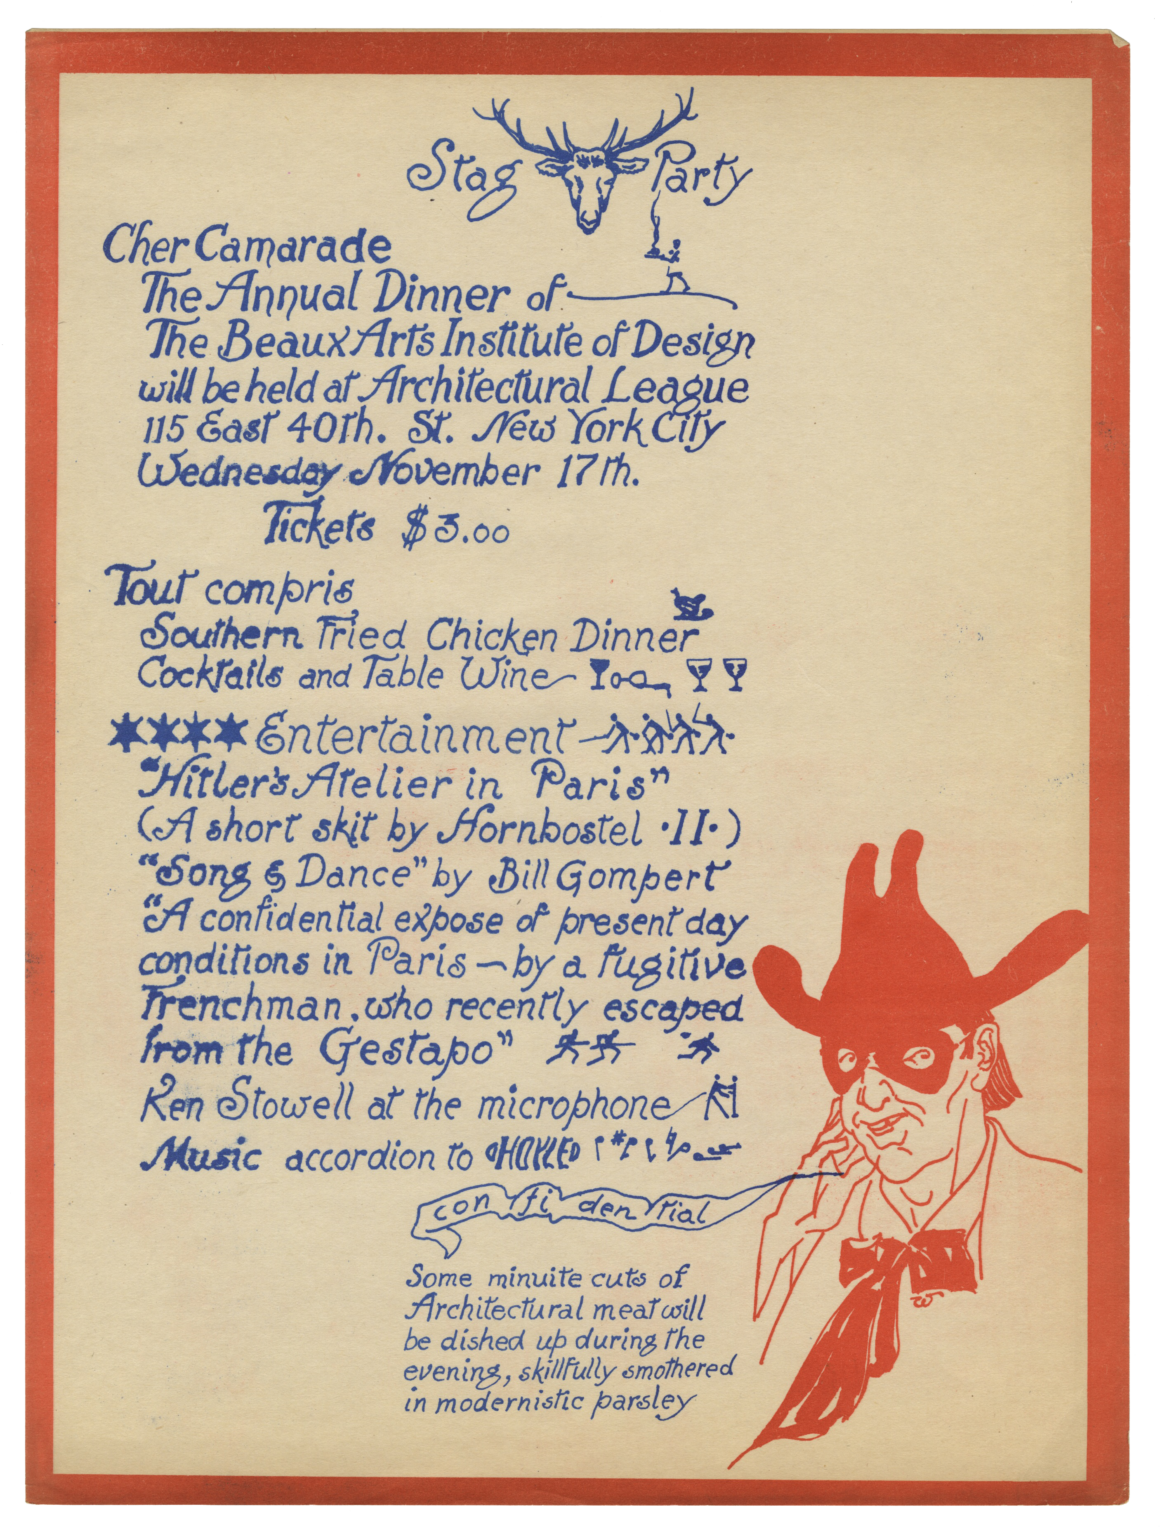 Stag Party
Cher Camarade
The Annual Dinner of
The Beaux Arts Institute of Design
will be held at Architectural League
115 East 40th. St. New York City
Wednesday November 17th.
Tickets $3.00
Tout compris
Southern Fried Chicken Dinner
Cocktails and Table Wine
Entertainment
"Hitler's Atelier in Paris"
(A short skit by Hornbostel ·II·)
"Song & Dance" by Bill Gompert
"A confidential expose of present day
conditions in Paris — by a fugitive
Frenchman, who recently escaped
from the Gestapo"
Ken Stowell at the microphone
Music accordion to
confidential
Some minuite cuts of
Architectural meat will
be dished up during the
evening, skillfully smothered
in modernistic parsley